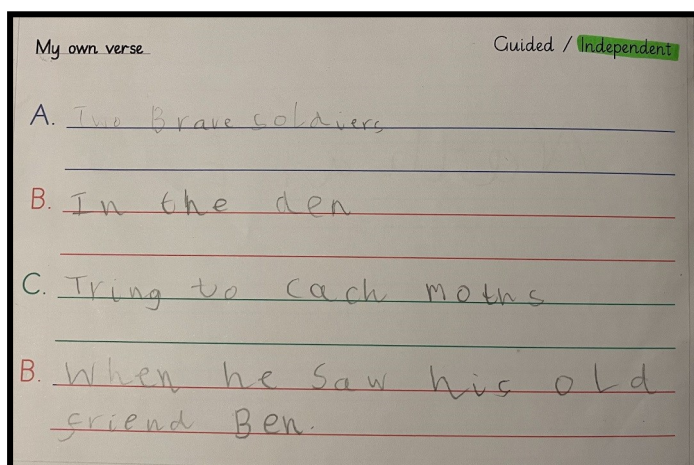 My own verse Guided / Independent
A. Two Brave soldiers
B. In the den
C. Tring to cach moths
B. When he saw his old
friend Ben.